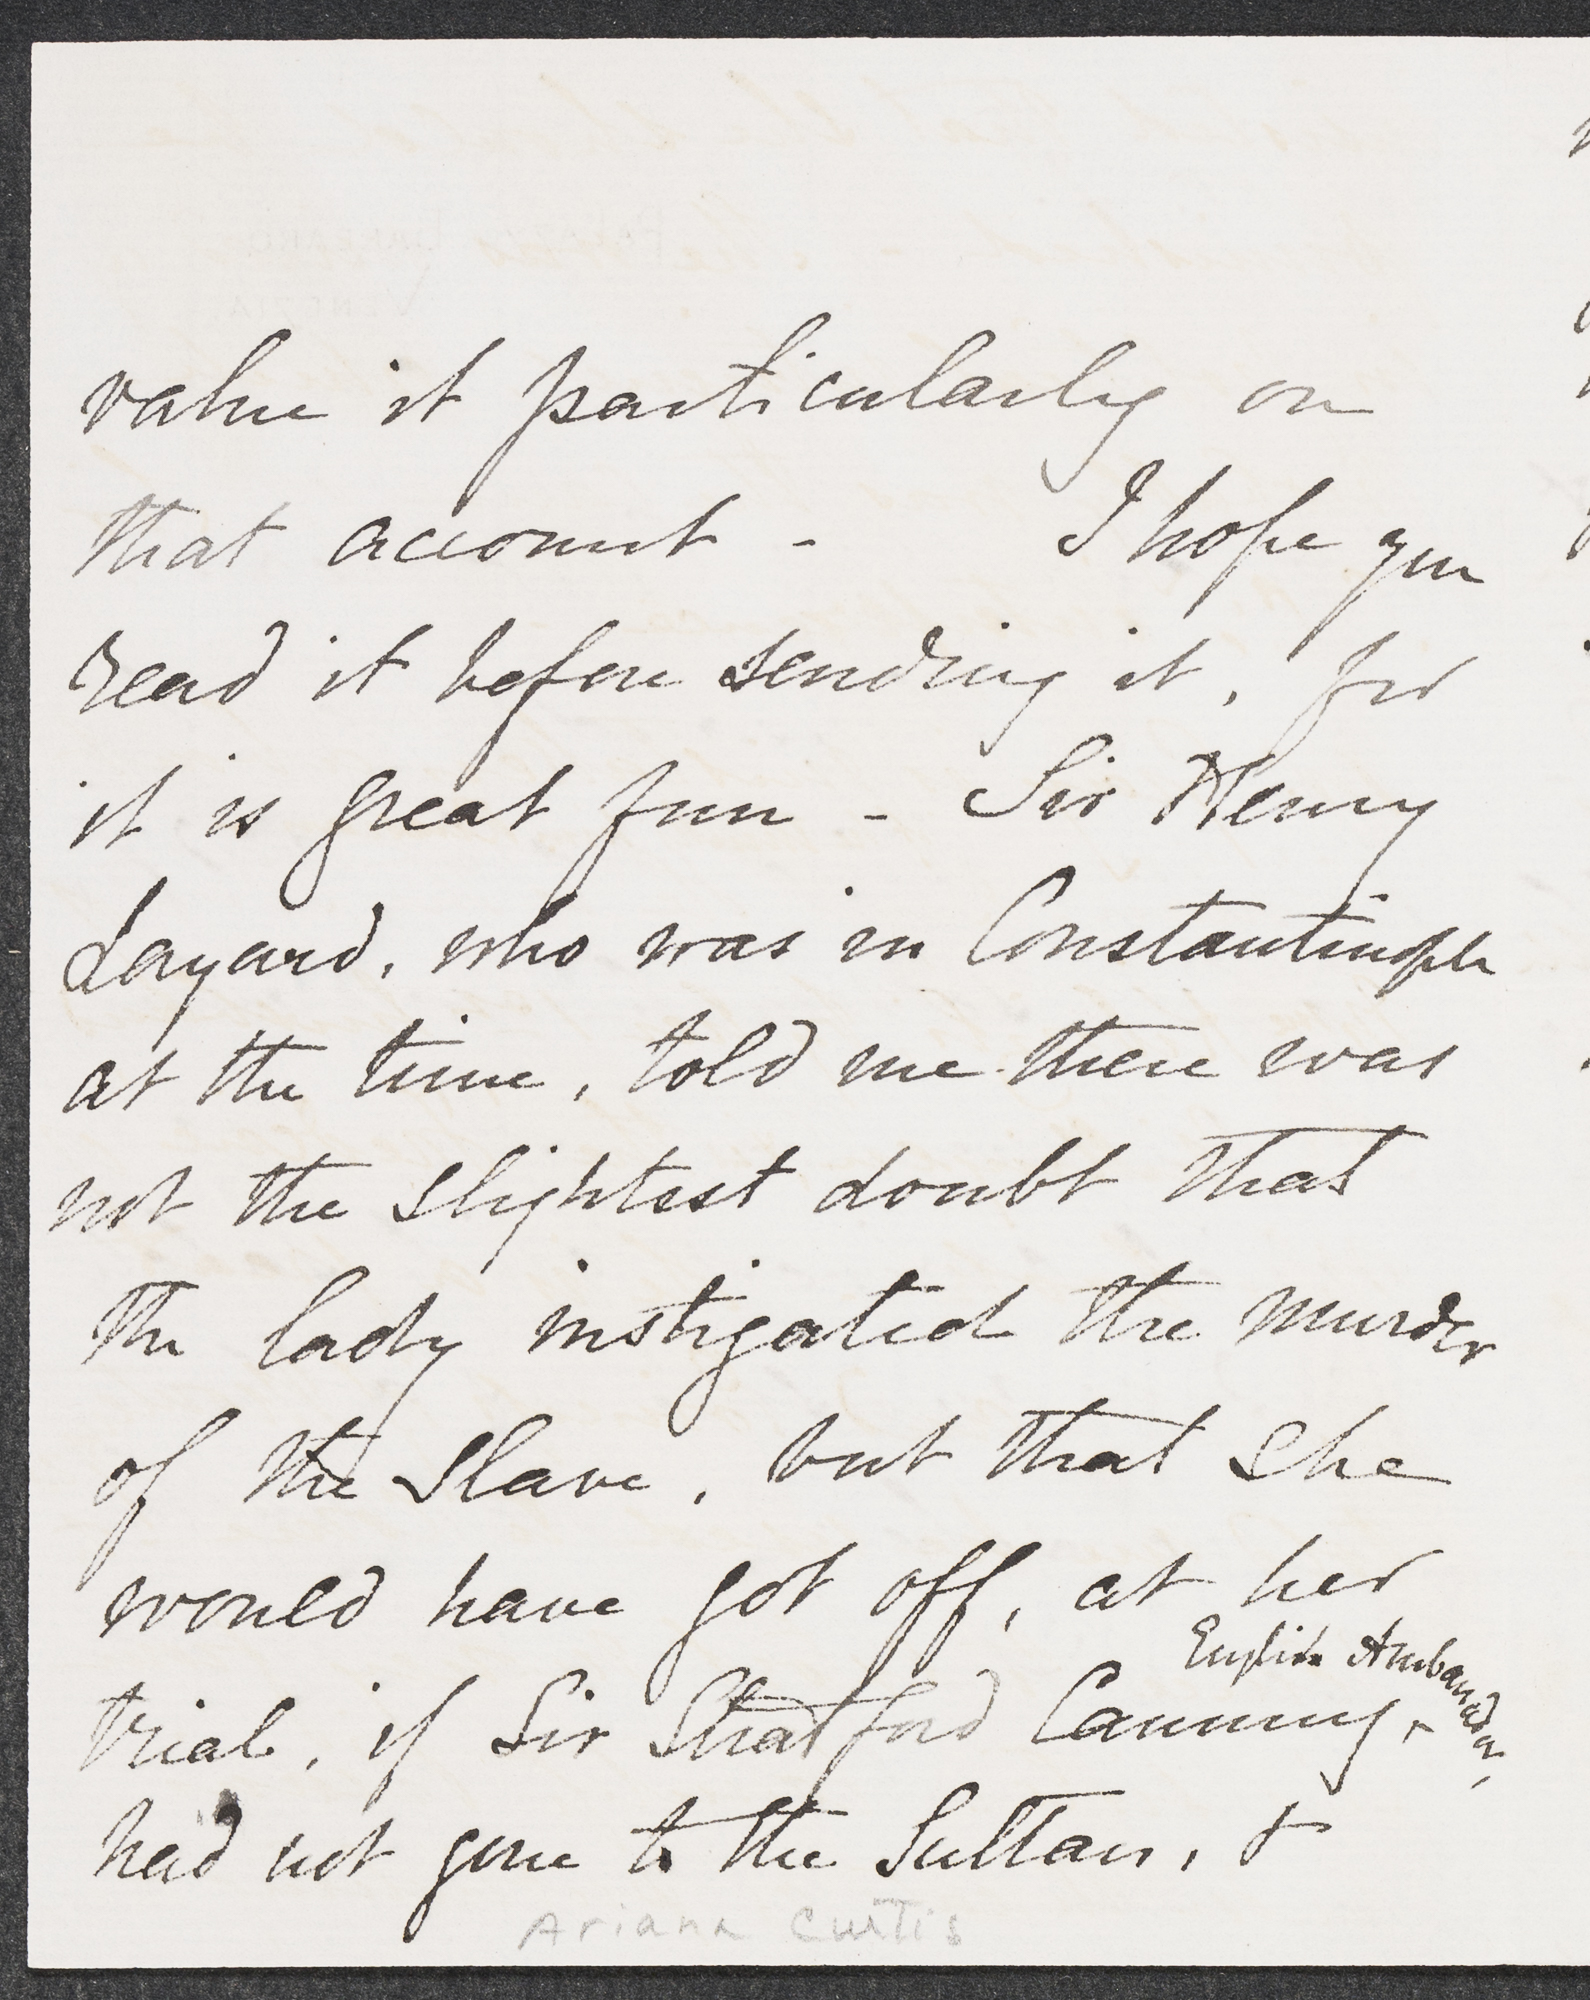 value it particularly on
that account - I hope you
read it before sending it, for
it is great fun - Sir Henry
Layard, who was in Constantinople
at the time, told me there was
not the slightest doubt that
the lady instigated the murder
of the slave, but that she
would have got off, at her
English Ambassador,
trial, if Sir Stratford Canning,
had not gone to the Sultan, &
Ariana Curtis